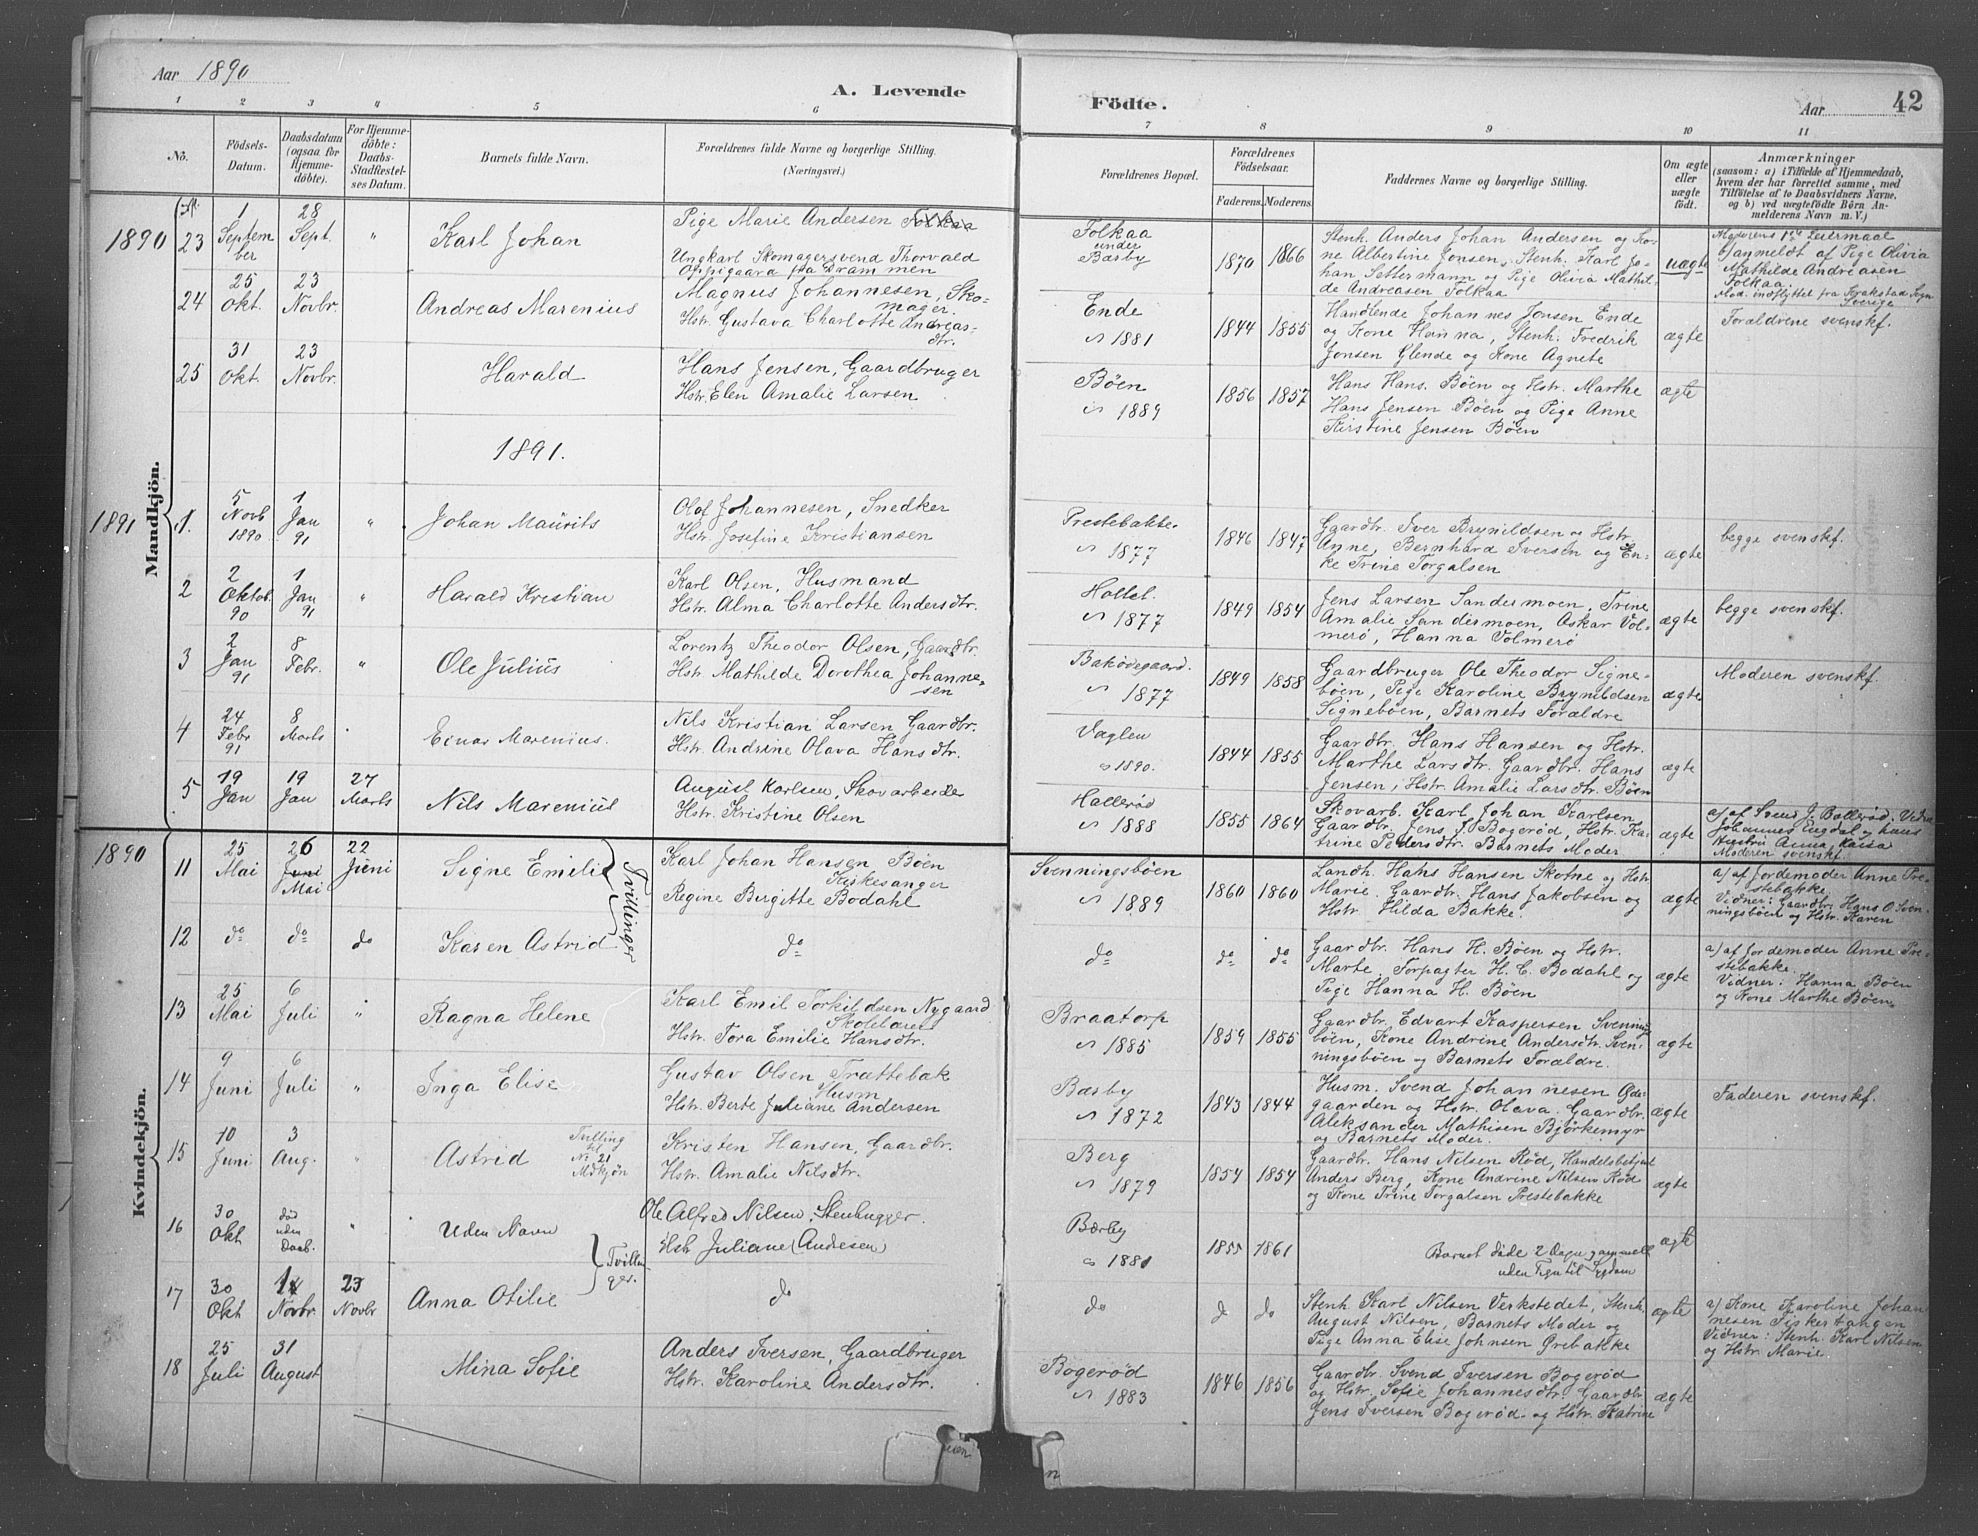 Aar 1890
A. Levende
Födte.
Aar
42
1 2 3 4 5 6 7 8 9 10 11
No.
Födsels-
Datum.
Daabsdatum
(ogsaa for
Hjemme-
döbte).
For Hjemme-
döbte:
Daabs-
Stadfæstel-
ses Datum.
Barnets fulde Navn.
Forældrenes fulde Navne og borgerlige Stilling.
(Næringsvei.)
Forældrenes Bopæl.
Forældrenes
Födselsaar.
Faderens. Moderens.
Faddernes Navne og borgerlige Stilling.
Om ægte
eller
uægte
födt.
Anmærkninger
(saasom: a) i Tilfælde af Hjemmedaab,
hvem der har forrettet samme, med
Tilföielse af to Daabsvidners Navne,
og b) ved uægtefödte Börn An-
melderens Navn m. V.)
Mandkjön.
1890 23
1
Septem
ber
28
Sept.
"
Karl Johan
Pige Marie Andersen Folkaa
Ungkarl Skomagersvend Thorvald
Oppigaara fra Drammen
Folkaa
under
Bærby
1870 1866
Stenh. Anders Johan Andersen og Ko-
ne Albertine Jonsen, Stenh. Karl Jo-
han Settermann og Pige Olivia Mathil-
de Andreasen Folkaa
uægte
Moderens 1ste Leiermaal
b) anmeldt af Pige Olivia
Mathilde Andreasen
Folkaa.
Mod. indflyttet fra Krakstad Sogn
Sverige
24
25
Okt.
23
Novbr.
Andreas Marenius
Magnus Johannesen, Sko-
mager.
Hstr. Gustava Charlotte Andreas-
dtr.
Ende
1881
1844 1855
Johannes Jonsen Ende
og Kone Hanna, Stenh. Fredrik
Jonsen Glende og Kone Agnete
ægte
Forældrene svenskf.
25
31
Okt.
23
Novbr.
Harald
Hans Jensen, Gaardbruger
Hstr. Elen Amalie Larsen
Böen
1889
1856 1857
Hans Hans. Böen og Hstr. Marthe
Hans Jensen Böen og Pige Anne
Kirstine Jensen Böen
ægte
1891.
1891 1.
5
Novb
1890
1
Jan
91
"
Johan Maurits
Olof Johannesen, Snedker
Hstr. Josefine Kristiansen
Prestebakke.
1877
1846 1847
Gaardbr. Iver Brynildsen og Hstr.
Anne, Bernhard Iversen og En-
ke Trine Torgalsen
ægte
begge svenskf.
2
2
Oktob.
90
1
Jan
91
"
Harald Kristian
Karl Olsen, Husmand
Hstr. Alma Charlotte Andersdtr.
Hollet.
1877
1849 1854
Jens Larsen Sandermoen, Trine
Amalie Sandermoen, Oskar Vol-
merö, Hanna Volmerö
ægte
begge svenskf.
3
2
Jan
91
8
Febr.
"
Ole Julius
Lorentz Theodor Olsen, Gaardbr.
Hstr. Mathilde Dorothea Johanne-
sen
Baködegaard.
1877
1849 1858
Gaardbruger Ole Theodor Signe-
böen, Pige Karoline Brynildsen
Signeböen, Barnets Forældre
ægte
Moderen svenskf.
4
24
Febr
91
8
Marts
Einar Marenius.
Nils Kristian Larsen Gaardbr.
Hstr. Andrine Olava Hansdtr.
Vaglen
1890.
1844 1855
Gaardbr. Hans Hansen og Hstr.
Marthe Larsdtr. Gaardbr. Hans
Jensen, Hstr. Amalie Larsdtr. Böen
ægte
5
19
Jan
19
Jan
27
Marts
Nils Marenius
August Karlsen, Skovarbeider
Hstr. Kristine Olsen
Halleröd
1888
1855 1864
Skovarb. Karl Johan Karlsen
Gaardbr. Jens J. Bogeröd, Hstr. Ka-
trine Pedersdtr. Barnets Moder
ægte
Johannes Engdal og hans
Hustru Anna Kaisa
Moderen svenskf.
Kvindekjön.
1890
11
25
Mai
26
Juni
Mai
22
Juni
Signe Emilie
Tvillinger
Karl Johan Hansen Böen
Kirkesanger
Regine Birgitte Bodahl
Svenningsböen
1889
1860 1860
Landh. Hans Hansen Skotne og Hstr
Marie. Gaardbr. Hans Jakobsen og
Hstr. Hilda Bakke.
ægte
a) af Jordemoder Anne Pre-
stebakke
Vidner: Gaardbr. Hans O. Sven-
ningsböen og Hstr. Karen
12
do
do
do
Karen Astrid
do
do
do
do
Gaardbr. Hans H. Böen og Hstr.
Marte. Forpagter H. C. Bodahl og
Pige Hanna H. Böen
ægte
a) af Jordemoder Anne Pre-
stebakke.
Vidner: Hanna Böen
og Kone Marthe Böen
13
25
Mai
6
Juli
"
Ragna Helene
Karl Emil Torkildsen Nygaard
Skolelærer
Hstr. Tora Emilie Hansdtr.
Braatorp
1885
1859 1855
Gaardbr. Edvart Kaspersen Svennings-
böen, Kone Andrine Andersdtr. Sven-
ningsböen og Barnets Forældre.
ægte
14
9
Juni
6
Juli
"
Inga Elise
Gustav Olsen Trættebak
Husm
Hstr. Berte Juliane Andersen
Bærby
1872
1843 1844
Husm. Svend Johannesen Öde-
gaarden og Hstr. Olava. Gaardbr.
Aleksander Mathisen Björkemyr
og Barnets Moder.
ægte
Faderen svenskf.
15
10
Juni
3
Aug.
"
Astrid
Tvilling
til
No 21
Mdkjön
Kristen Hansen, Gaardbr.
Hstr. Amalie Nilsdtr.
Berg
1879
1854 1854
Gaardbr. Hans Nilsen Röd, Handelsbetjent
Anders Berg, Kone Andrine Nilsen Röd
og Kone Trine Torgalsen Prestebakke
ægte
16
30
Okt
död
uden
Daab.
"
Uden Navn
Tvillin
ger.
Ole Alfred Nilsen, Stenhugger.
Hstr Juliane (Andresen)
Bærby
1881
1855 1861
Barnet döde 2 Dage gammelt
uden Tegn til Sygdom
ægte
17
30
Okt
Novbr
23
Novbr
Anna Otilie
do
do
do
do
Stenh. Karl Nilsen Verkstedet, Stenh.
August Nilsen, Barnets Moder og
Pige Anna Elise Johnsen Grebakke
ægte
a) Kone Karoline Johan
nesen Fiskertangen
Vidner: Stenh. Karl Nilsen
og Hstr. Marie
18
25
Juli
31
August
Mina Sofie
Anders Iversen, Gaardbruger
Hstr. Karoline Andersdtr.
Bogeröd
1883
1846 1856
Gaardbr. Svend Iversen Bogeröd
og Hstr. Sofie Johannesdtr. Gaardbr
Jens Iversen Bogeröd og Hstr. Katrine
ægte